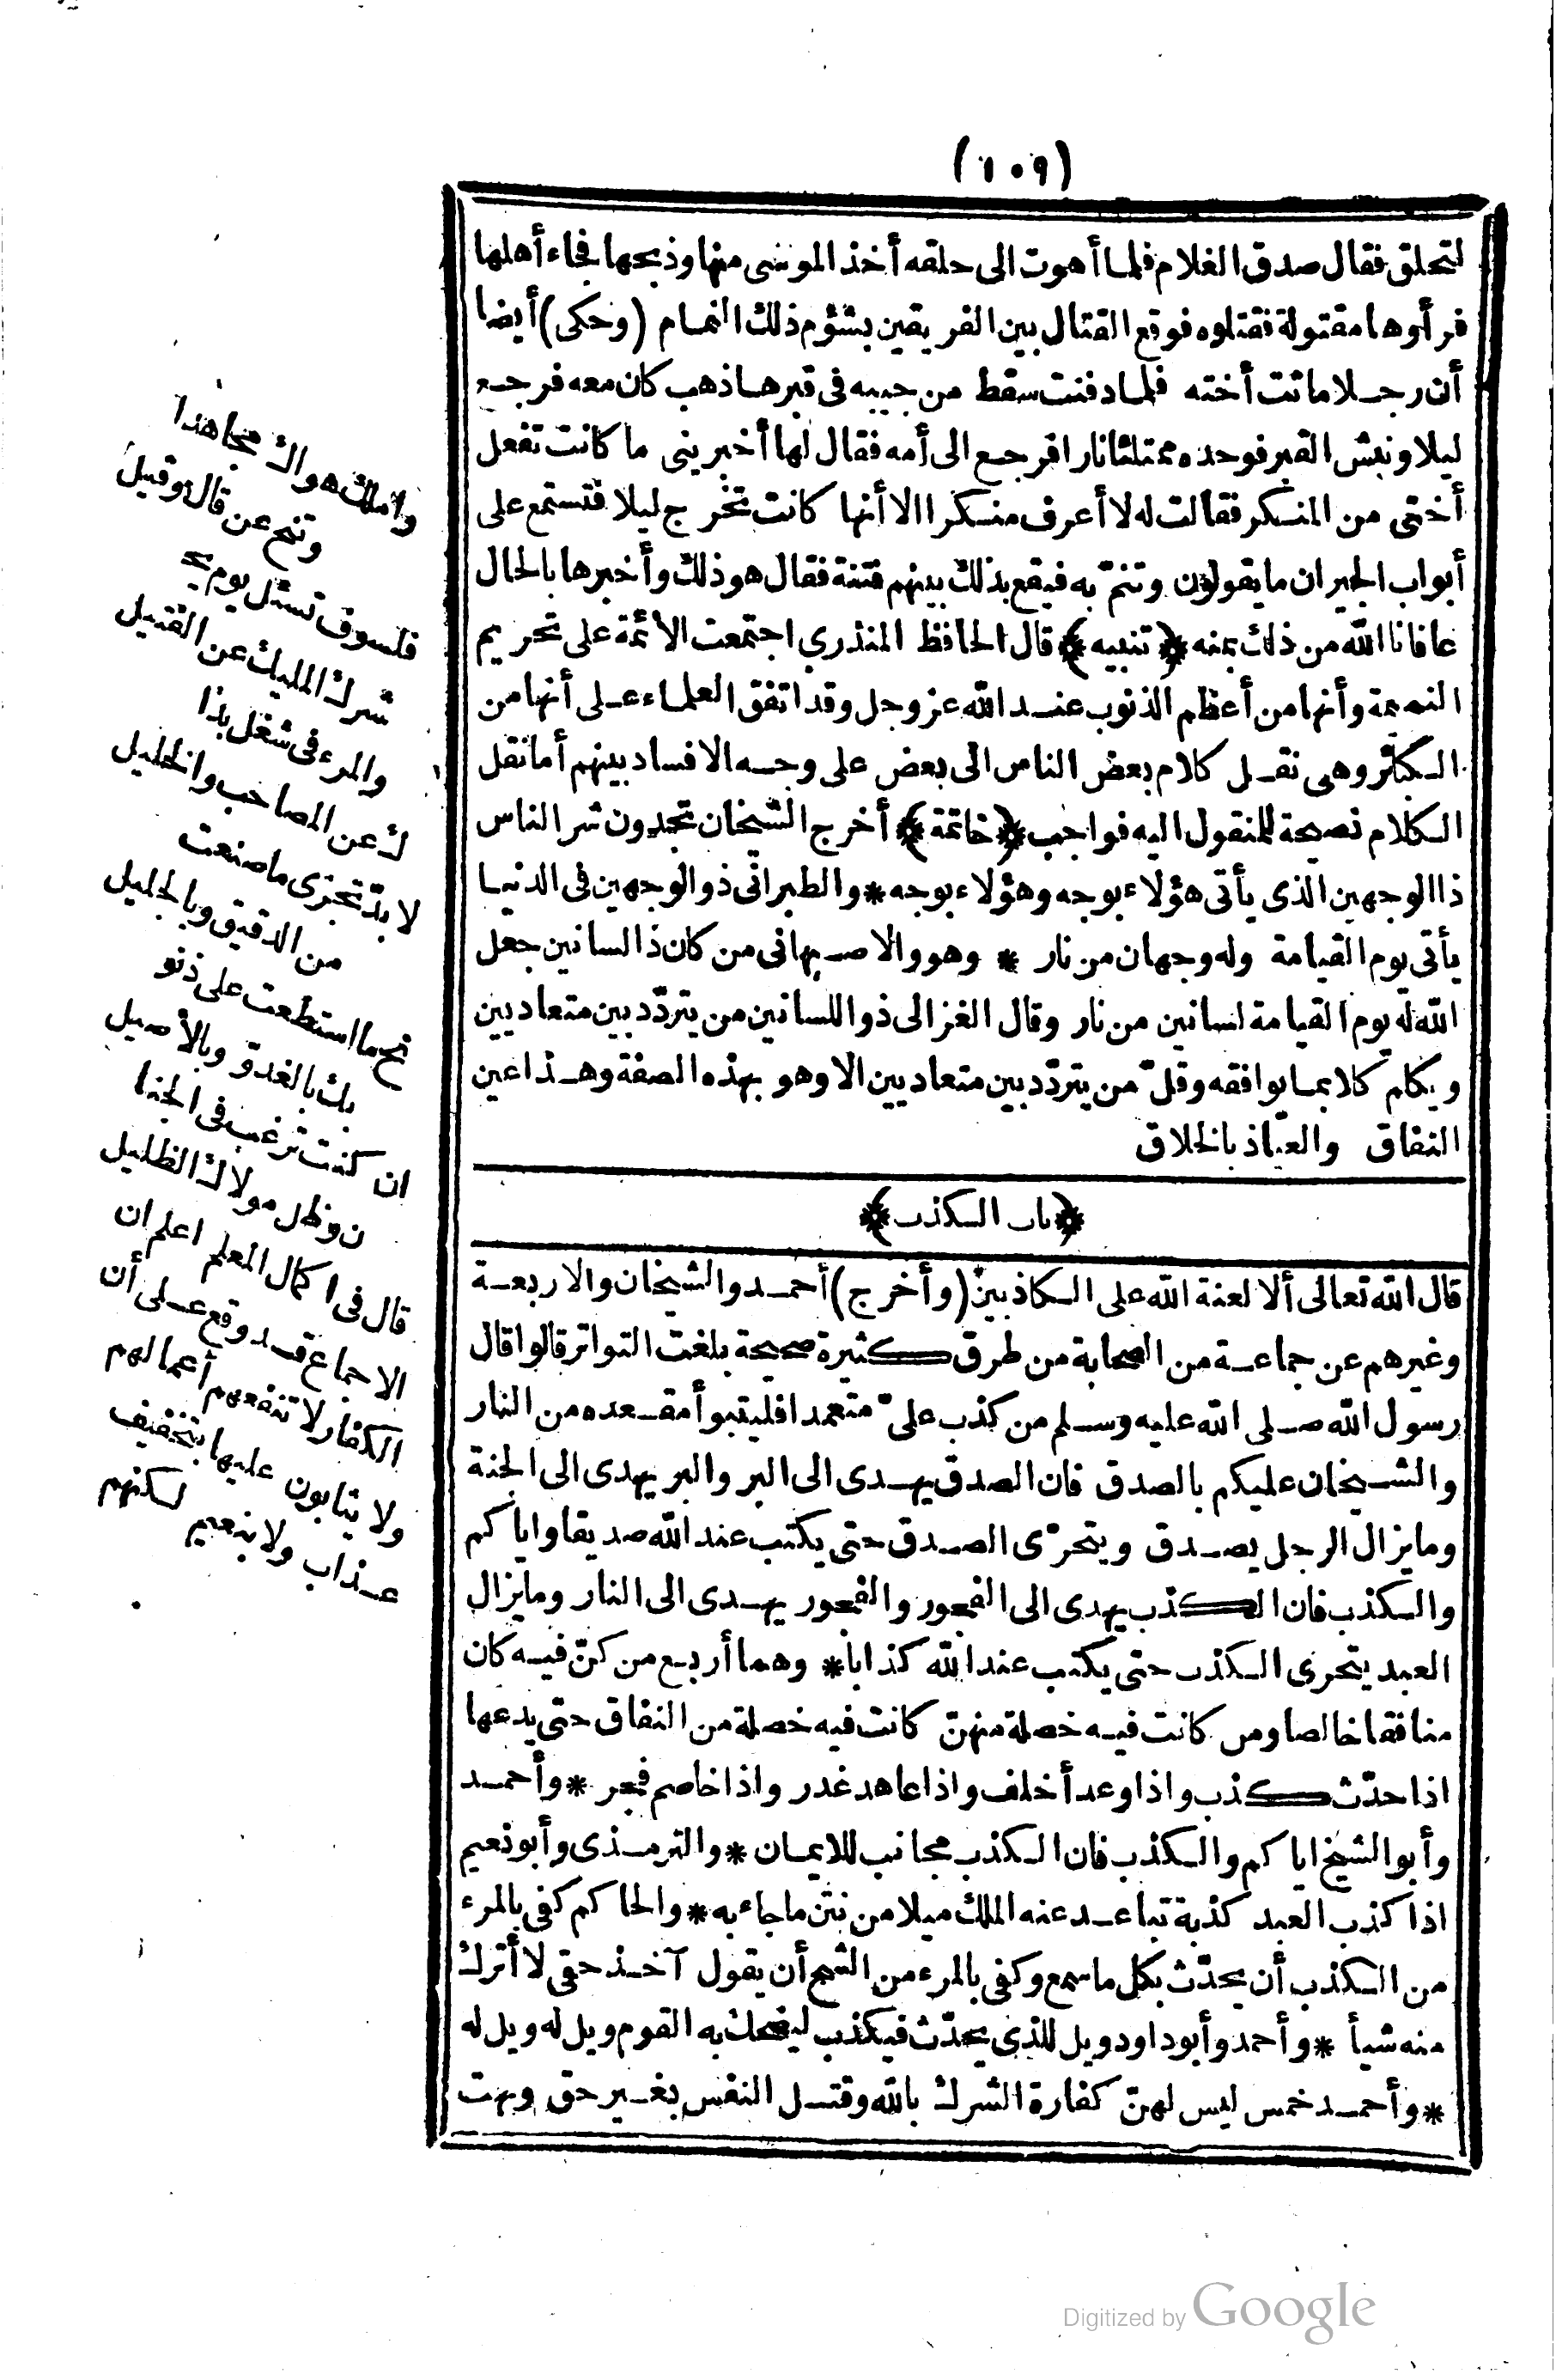 (١٠٩)
لتحلق فقال صدق الغلام فلما أهوت الى حلقه أخذ الموسى منها وذبحها فجاء أهلها
فرأوها مقتولة فقتلوه فوقع القتال بين الفريقين بشؤم ذلك النمام (وحكى) أيضا
أن رجلا ماتت أخته فلما دفنت سقط من جيبه فى قبرها ذهب كان معه فرجع
ليلا ونبش القبر فوجده ممتلئا نارا فرجع الى أمه فقال لها أخبرينى ما كانت تفعل
أختى من المنكر فقالت له لا أعرف منكرا الا أنها كانت تخرج ليلا فتستمع على
أبواب الجيران ما يقولون وتنمّ به فيقع بذلك بينهم فتنة فقال هو ذلك وأخبرها بالحال
عافانا الله من ذلك بمنه ﴿تنبيه﴾ قال الحافظ المنذرى اجتمعت الأئمة على تحريم
النميمة وأنها من أعظم الذنوب عند الله عز وجل وقد اتفق العلماء على أنها من
الكبائر وهى نقل كلام بعض الناس الى بعض على وجه الافساد بينهم أما نقل
الكلام نصيحة للمنقول اليه فواجب ﴿خاتمة﴾ أخرج الشيخان تجدون شر الناس
ذا الوجهين الذى يأتى هؤلاء بوجه وهؤلاء بوجه * والطبرانى ذو الوجهين فى الدنيا
يأتى يوم القيامة وله وجهان من نار * وهو والاصبهانى من كان ذا لسانين جعل
الله له يوم القيامة لسانين من نار وقال الغزالى ذو اللسانين من يتردّد بين متعاديين
ويكلم كلا بما يوافقه وقلّ من يتردّد بين متعاديين الا وهو بهذه الصفة وهذا عين
النفاق والعياذ بالخلاق
﴿باب الكذب﴾
قال الله تعالى ألا لعنة الله على الكاذبين (وأخرج) أحمد والشيخان والاربعة
وغيرهم عن جماعة من الصحابة من طرق كثيرة صحيحة بلغت التواتر قالوا قال
رسول الله صلى الله عليه وسلم من كذب علىّ متعمدا فليتبوأ مقعده من النار
والشيخان عليكم بالصدق فان الصدق يهدى الى البر والبر يهدى الى الجنة
وما يزال الرجل يصدق ويتحرّى الصدق حتى يكتب عند الله صديقا واياكم
والكذب فان الكذب يهدى الى الفجور والفجور يهدى الى النار وما يزال
العبد يتحرى الكذب حتى يكتب عند الله كذابا * وهما أربع من كنّ فيه كان
منافقا خالصا ومن كانت فيه خصلة منهنّ كانت فيه خصلة من النفاق حتى يدعها
اذا حدّث كذب واذا وعد أخلف واذا عاهد غدر واذا خاصم فجر * وأحمد
وأبو الشيخ اياكم والكذب فان الكذب مجانب للايمان * والترمذى وأبو نعيم
اذا كذب العبد كذبة تباعد عنه الملك ميلا من نتن ما جاء به * والحاكم كفى بالمرء
من الكذب أن يحدّث بكل ما سمع وكفى بالمرء من الشح أن يقول آخذ حقى لا أترك
منه شيأ * وأحمد وأبو داود ويل للذى يحدّث فيكذب ليضحك به القوم ويل له ويل له
* وأحمد خمس ليس لهنّ كفارة الشرك بالله وقتل النفس بغير حق وبهت
واملك هواك مجاهدا
وتنح عن قال وقيل
فلسوف تسئل يوم يحـ
ـشرك المليك عن الفتيل
والمرء فى شغل بذا
ك عن الصاحب والخليل
لا بدّ تجزى ما صنعت
من الدقيق وبالجليل
نح ما استطعت على ذنو
بك بالغدوّ وبالأصيل
ان كنت ترغب فى الجنا
ن وظل مولاك الظليل
قال فى اكمال المعلم اعلم ان
الاجماع قد وقع على أن
الكفار لا تنفعهم أعمالهم
ولا يثابون عليها بتخفيف
عذاب ولا بنعيم لكنهم
Digitized by Google